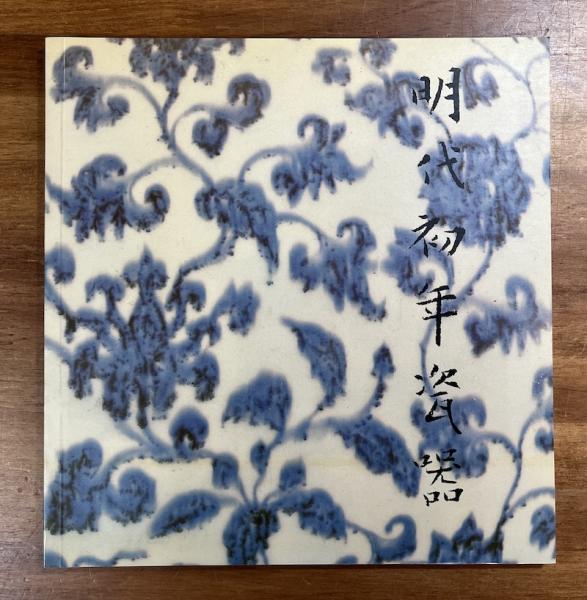 明代初年瓷器